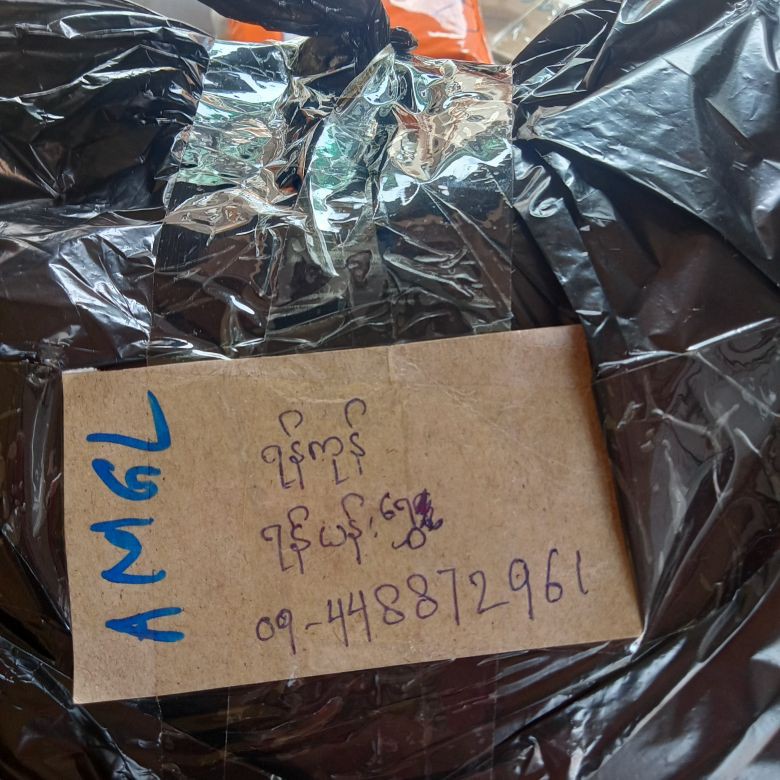 AMGL
ရန်ကုန်
ရန်ယန်း
09-448872961